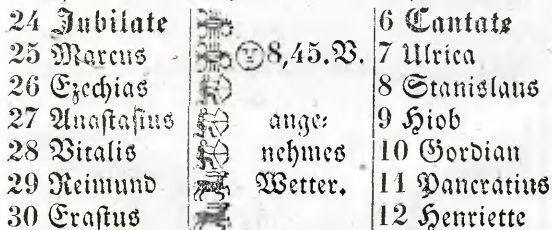 24 Jubilate 6 Cantate
25 Marcus 8,45.V. 7 Ulrica
26 Ezechias 8 Stanislaus
27 Anastasius ange- 9 Hiob
28 Vitalis nehmes 10 Gordian
29 Reimund Wetter. 11 Pancratius
30 Erastus 12 Henriette